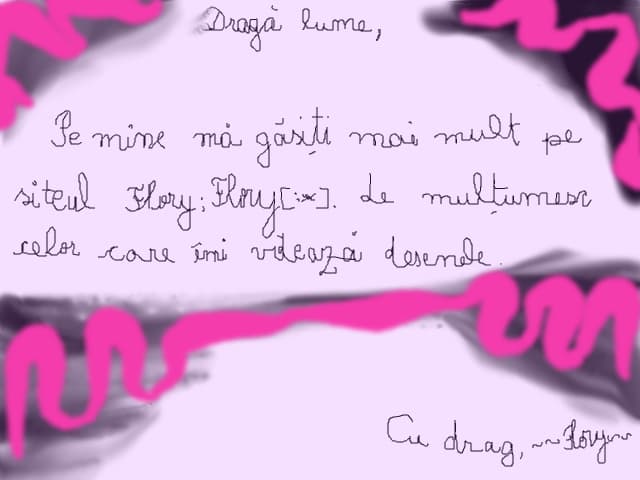 Dragă lume,
Pe mine mă găsiți mai mult pe
siteul Flory; Flory[:*]. Le mulțumesc
celor care îmi vdează desenele.
Cu drag, ~~Flory~~